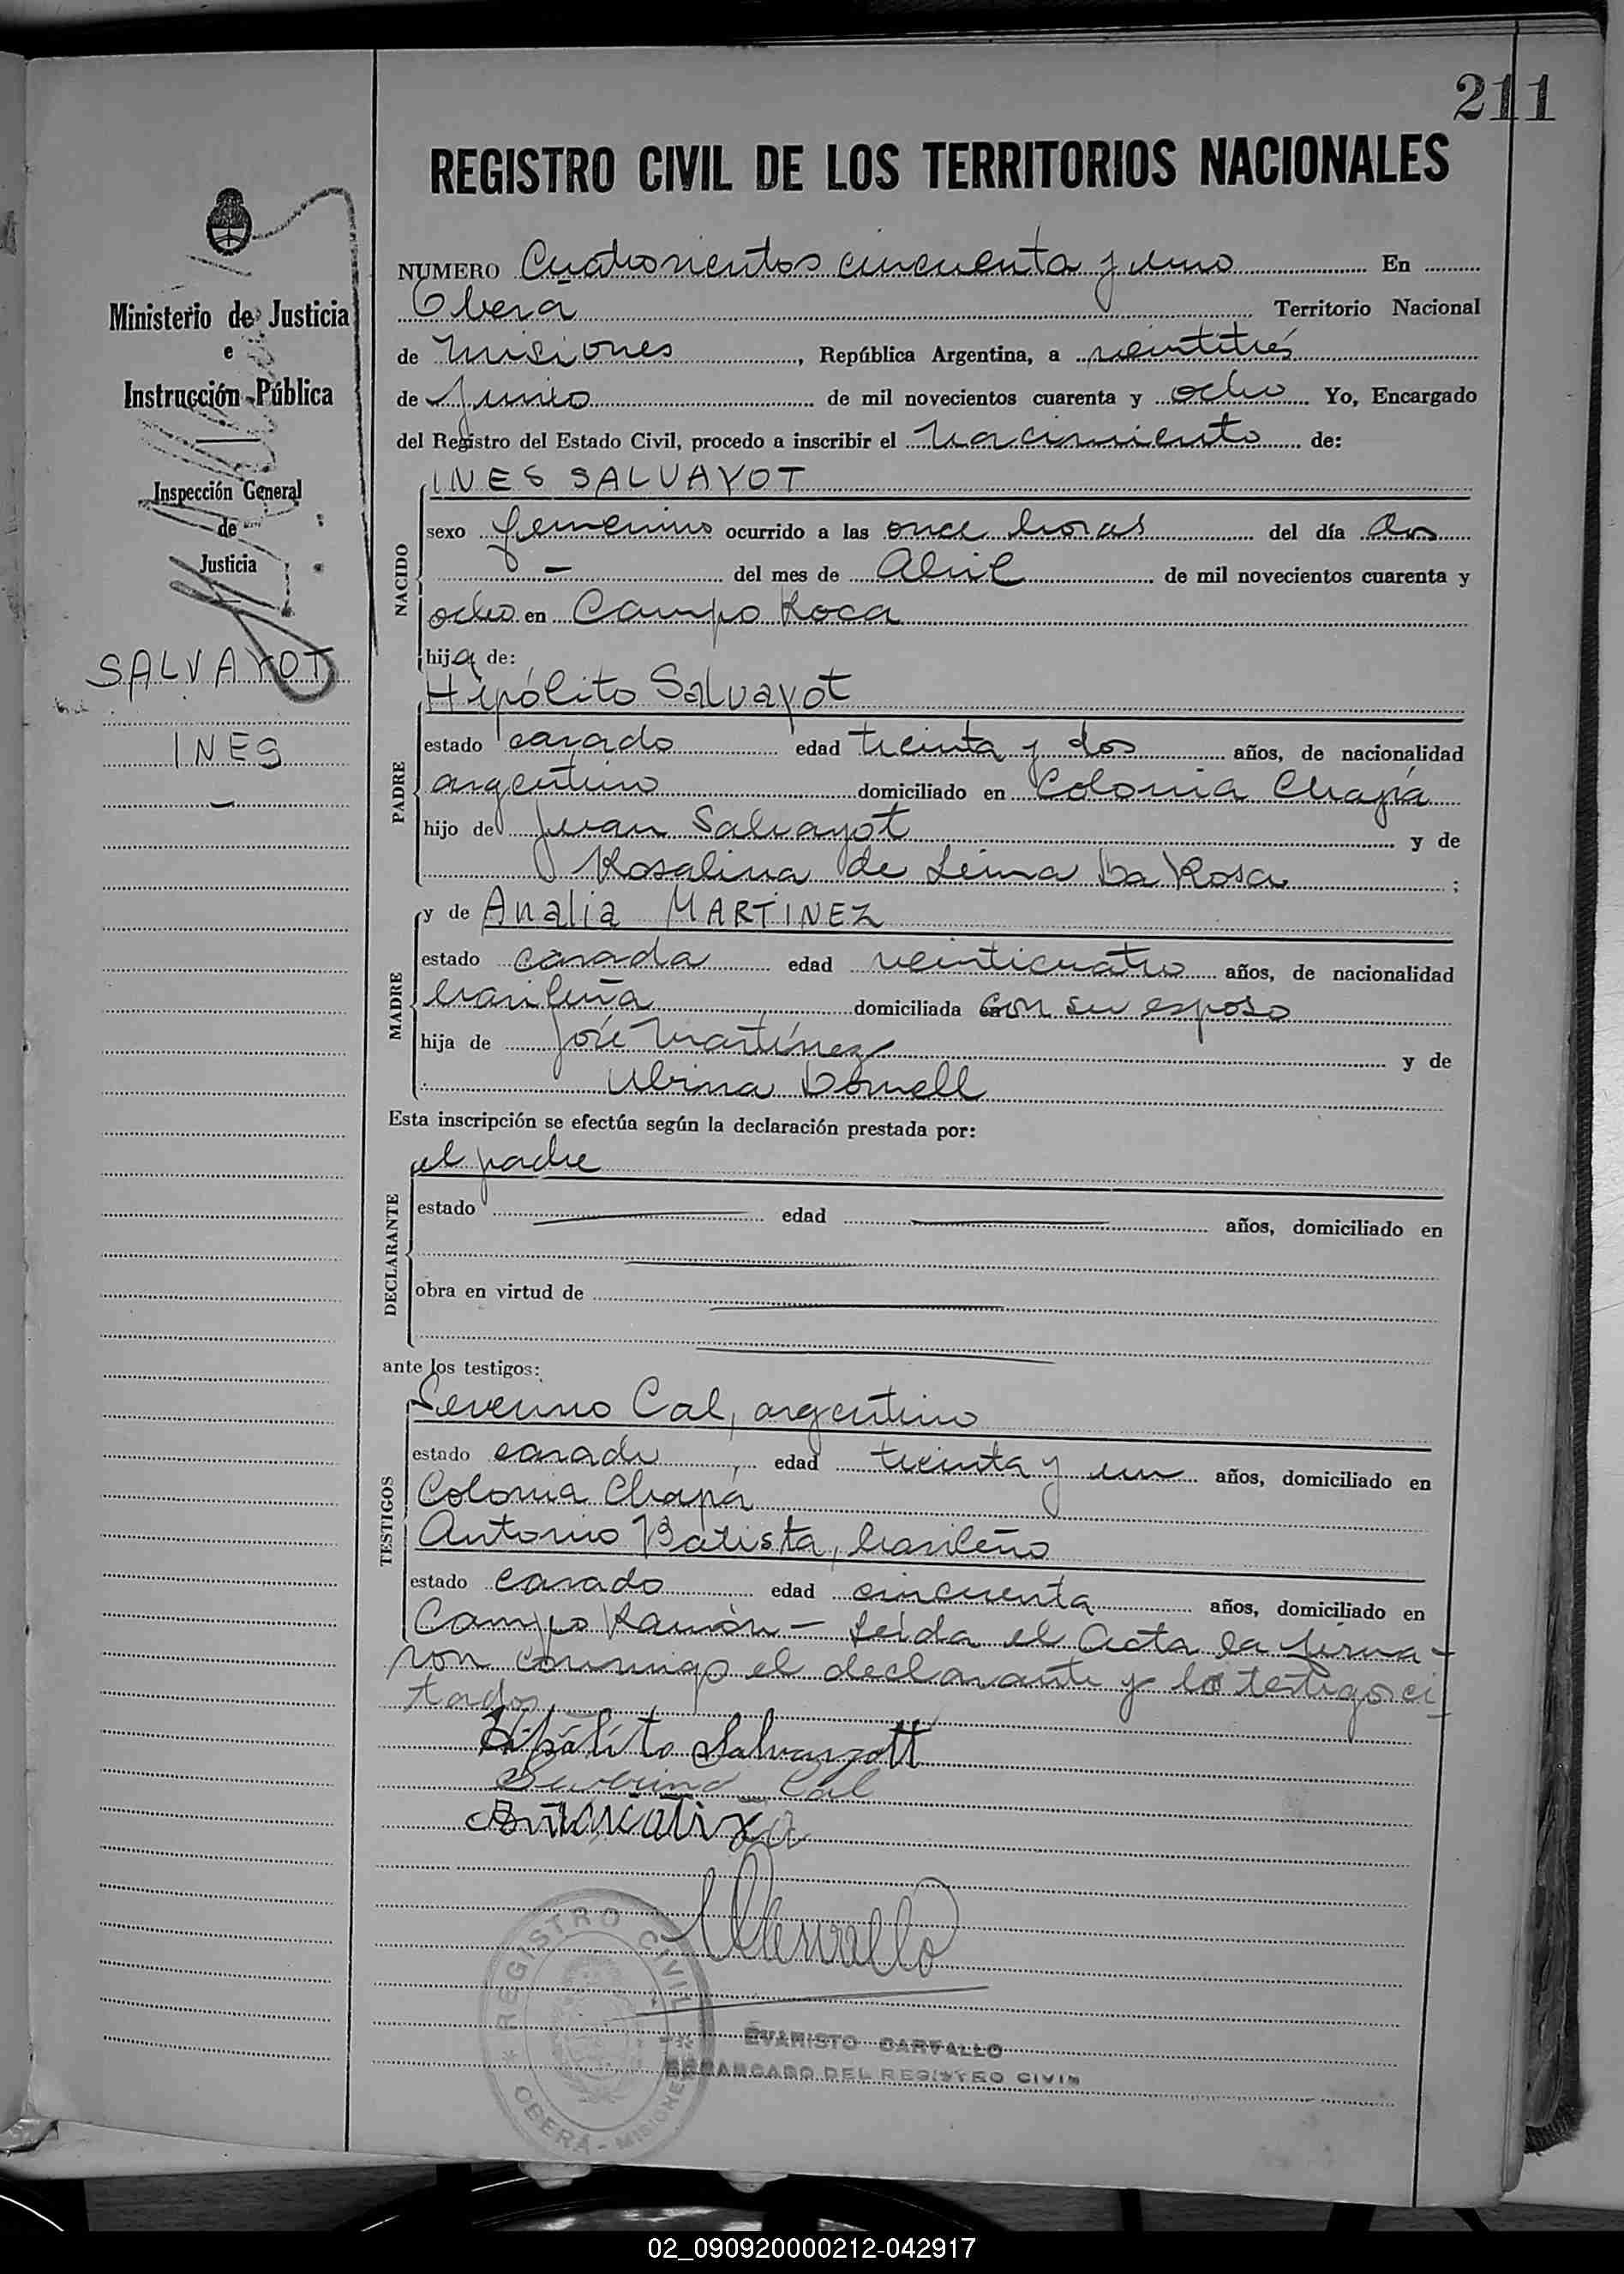 211
REGISTRO CIVIL DE LOS TERRITORIOS NACIONALES
Ministerio de Justicia
e
Instrucción Pública
Inspección General
de
Justicia
SALVAYOT
INES
NUMERO Cuatrocientos cincuenta y uno En
Oberá Territorio Nacional
de Misiones, República Argentina, a veintitrés
de Junio de mil novecientos cuarenta y ocho Yo, Encargado
del Registro del Estado Civil, procedo a inscribir el nacimiento de:
NACIDO
INES SALVAYOT
sexo femenino ocurrido a las once horas del día dos
— del mes de Abril de mil novecientos cuarenta y
ocho en Campo Roca
hija de:
PADRE
Hipólito Salvayot
estado casado edad treinta y dos años, de nacionalidad
argentino domiciliado en Colonia Chapá
hijo de Juan Salvayot y de
Rosalina de Leima Da Rosa ;
MADRE
y de Analia MARTINEZ
estado casada edad veinticuatro años, de nacionalidad
brasileña domiciliada con su esposo
hija de José Martínez y de
Ubina
Esta inscripción se efectúa según la declaración prestada por:
DECLARANTE
el padre
estado edad años, domiciliado en
obra en virtud de
ante los testigos:
TESTIGOS
Severino Cal, argentino
estado casado edad treinta y un años, domiciliado en
Colonia Chapá
Antonio Batista, brasileño
estado casado edad cincuenta años, domiciliado en
Campo Ramón — Leída el Acta la firma-
ron conmigo el declarante y los testigos ci
tados
Hipólito Salvayott
Severino Cal
REGISTRO CIVIL
OBERÁ - MISIONES
EVARISTO CARVALLO
ENCARGADO DEL REGISTRO CIVIL
02_090920000212-042917